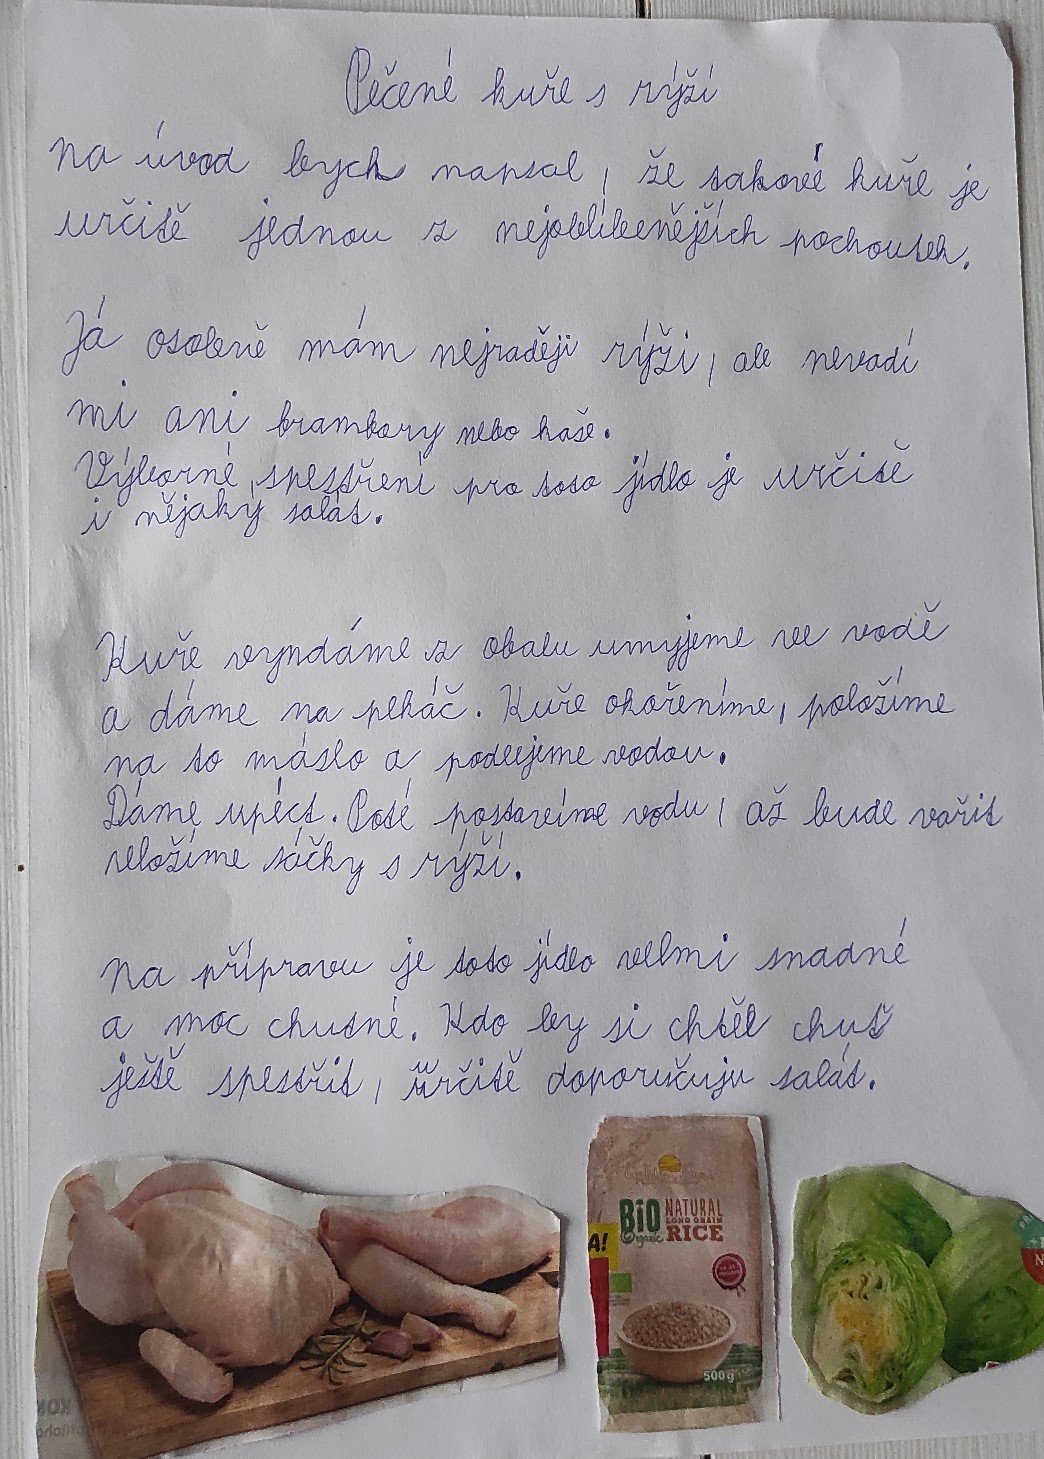 Pečené kuře s rýží
Na úvod bych napsal, že takové kuře je
určitě jednou z nejoblíbenějších pochoutek.
Já osobně mám nejraději rýži, ale nevadí
mi ani brambory nebo kaše.
Výborné spestření pro toto jídlo je určitě
i nějaký salát.
Kuře vyndáme z obalu umyjeme ve vodě
a dáme na pekáč. Kuře okořeníme, položíme
na to máslo a podlejeme vodou.
Dáme upéct. Poté postavíme vodu, až bude vařit
vložíme sáčky s rýží.
Na přípravu je toto jídlo velmi snadné
a moc chutné. Kdo by si chtěl chuť
ještě spestřit, určitě doporučuju salát.
BIO NATURAL
Organic LONG GRAIN
RICE
A!
500g